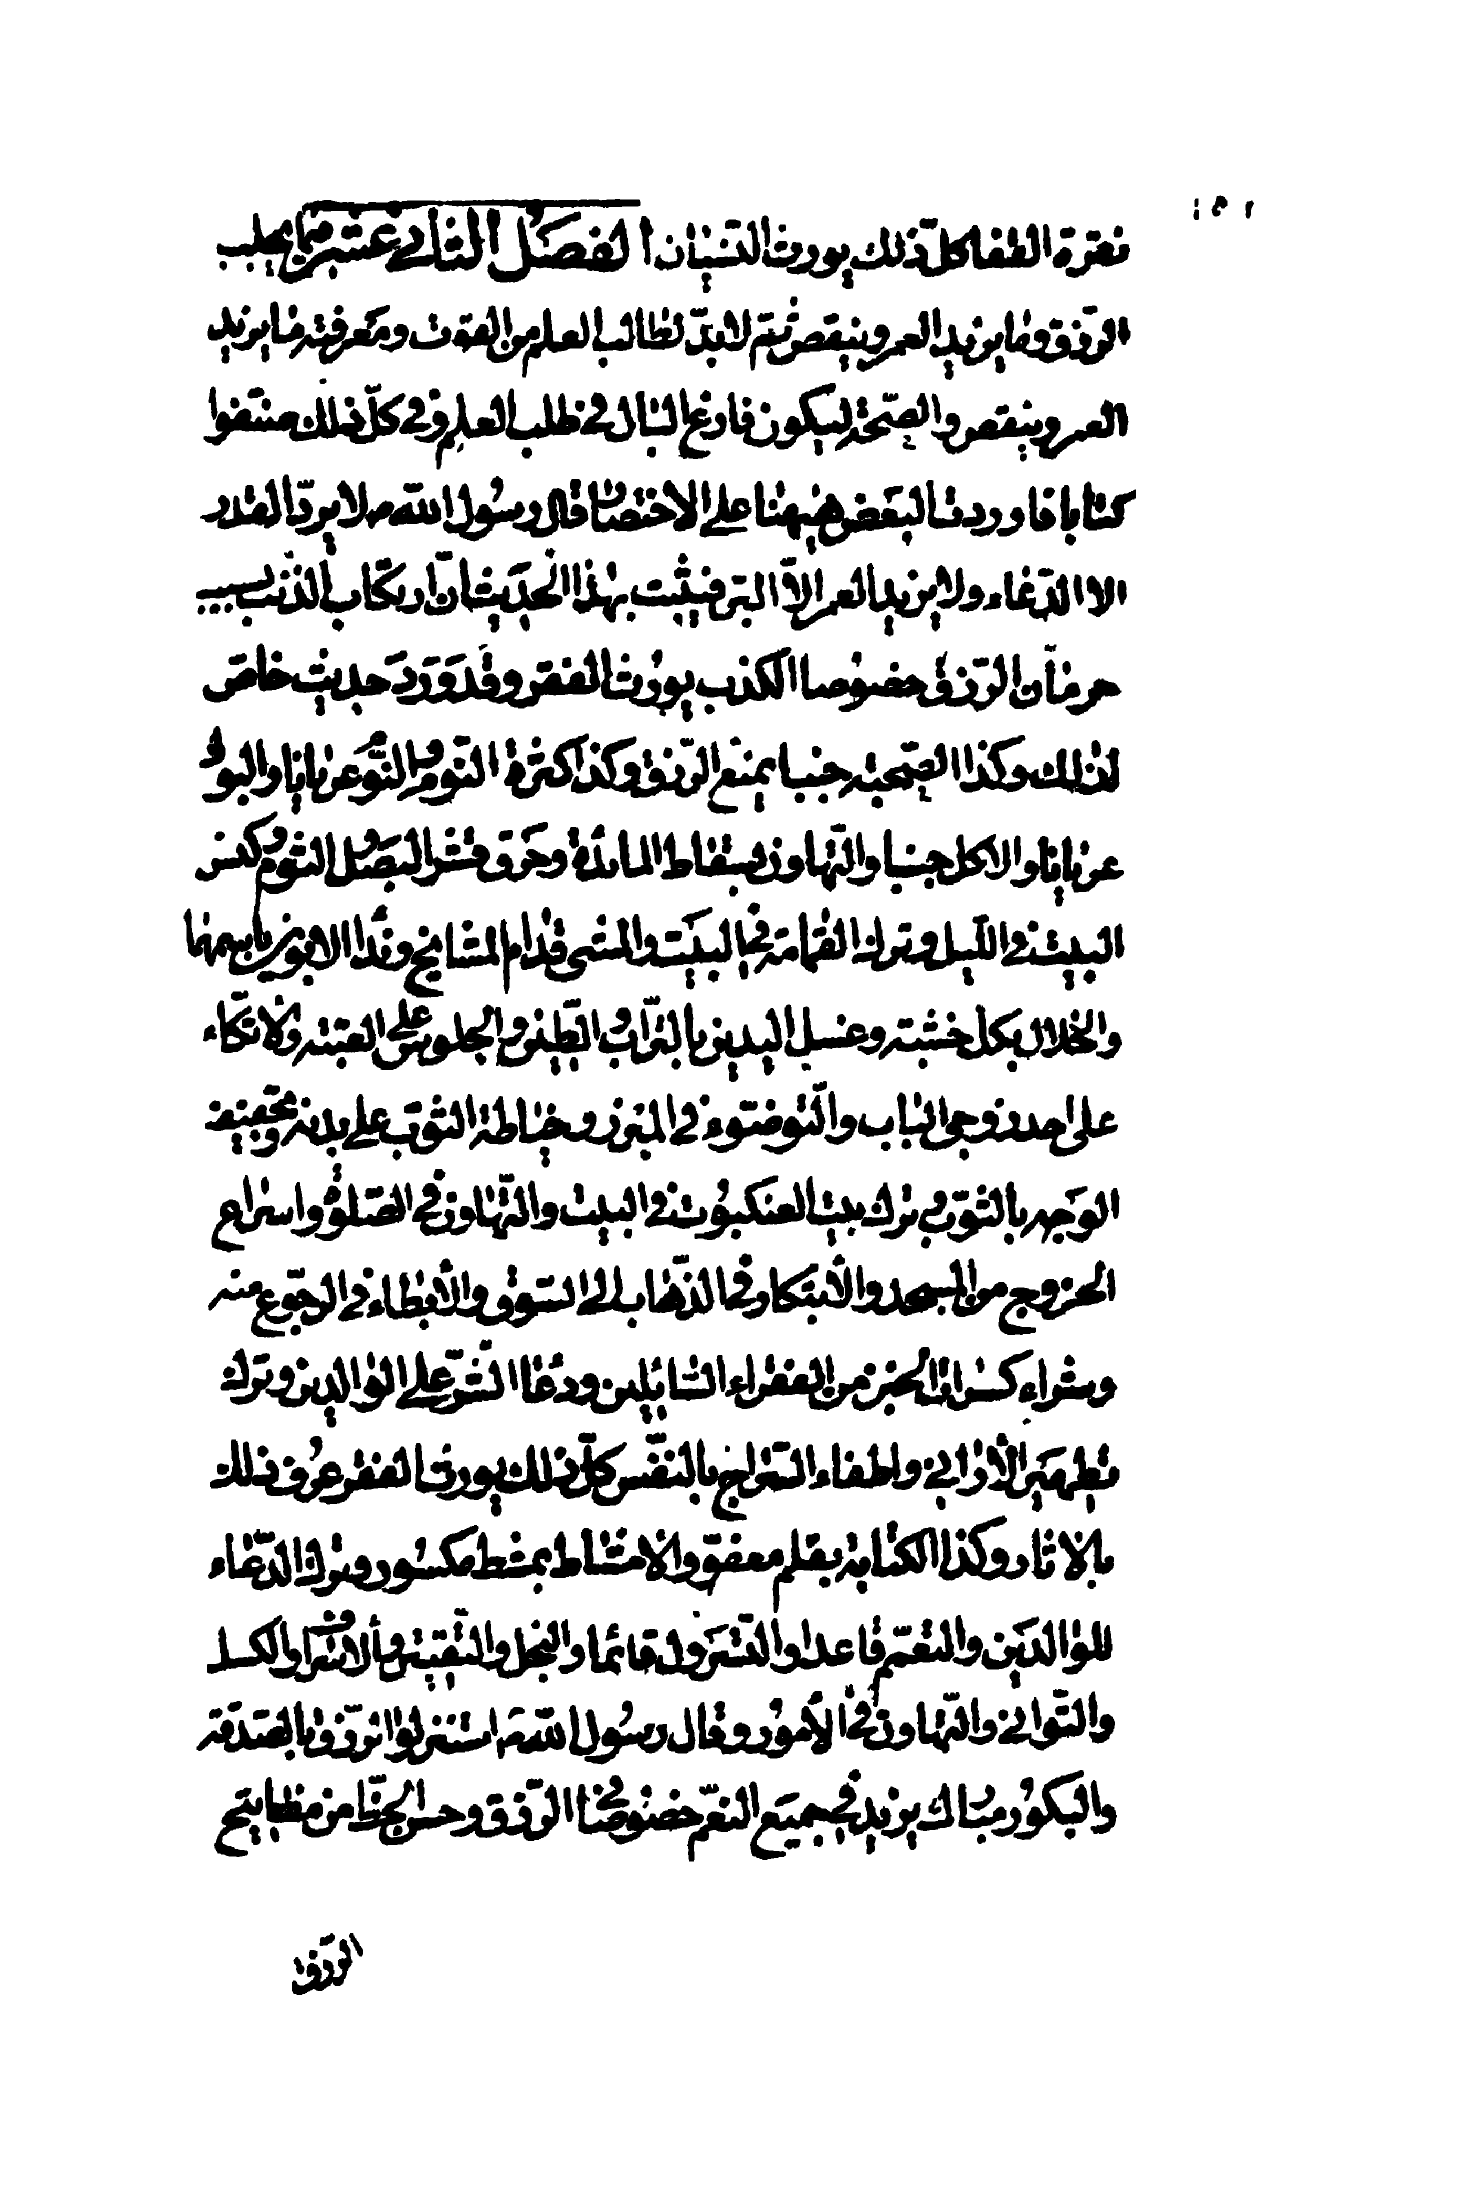 نقرة القفا كل ذلك يورث النسيان الفصل الثاني عشر فيما يجلب
الرزق وما يزيد العمر وينقص ثم لا بدّ لطالب العلم من القوت ومعرفة ما يزيد
العمر وينقص والصحة ليكون فارغ البال في طلب العلم وفي كلّ ذلك صنفوا
كتابا فاوردت البعض هيهنا على الاختصار قال رسول الله ص لا يردّ القدر
الا الدّعاء ولا يزيد العمر الاّ البر فيثبت بهذا الحديث انّ ارتكاب الذنب يسبب
حرمان الرّزق خصوصا الكذب يورث الفقر وقد ورد حديث خاص
لذلك وكذا الصّبحة جنبا يمنع الرّزق وكذا كثرة النّوم والنّوم عريانا والبول
عريانا والاكل جنبا والتّهاون بسقاط المائدة وحرق قشر البصل الثوم وكنس
البيت في اللّيل وترك القمامة في البيت والمشى قدام المشايخ وندا الابوين باسمهما
والخلال بكل خشبة وغسل اليدين بالتراب والطّين والجلوس على العتبة والاتكاء
على احد زوجي الباب والتّوضوء في المبرز وخياطة الثوب على بدنه وتجفيف
الوجه بالثوب وترك بيت العنكبوت في البيت والتّهاون في الصّلوة واسراع
الخروج من المسجد والابتكار في الذّهاب الى السّوق والابطاء في الرجوع منه
وشراء كسرات الخبز من الفقراء السّائلين ودعا الشّر على الوالدين وترك
تطهير الاواني واطفاء السّراج بالنّفس كلّ ذلك يورث الفقر عرف ذلك
بالاثار وكذا الكتابة بقلم معقّو والامتشاط بمشط مكسور وترك الدّعاء
للوالدين والتعمّم قاعدا والتسرول قائما والبخل والتقتير والاسراف والكسل
والتّواني والتهاون في الامور وقال رسول اللّه ص استنزلوا الرّزق بالصدقة
والبكور مبارك يزيد في جميع النعم خصوصا في الرّزق وحسن الخطّ من مفاتيح
الرزق